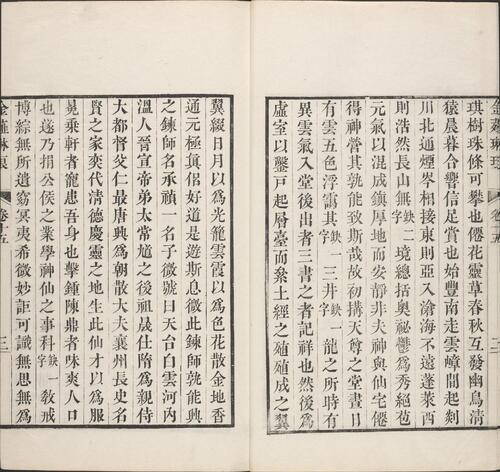 金薤琳琅 卷十五 二
琪樹珠條可攀也僊花靈草春秋互發幽鳥清
猿晨暮合響信足賞也始豐南走雲嶂間起剡
川北通煙岑相接東則亞入滄海不遠蓬萊西
則浩然長山無缺二字境總括奧祕鬱爲秀絕苞
元氣以混成鎭厚地而安靜非夫神與仙宅僊
得神營其孰能致斯哉故初搆天尊之堂晝日
有雲五色浮靄其缺一字三井缺一字龍之所時有
異雲氣入堂後出者三書之者記祥也然後爲
虛室以鑿戶起層臺而絫土經之殖殖成之翼
翼綴日月以爲光籠雲霞以爲色花散金地香
通元極眞侶好道是遊斯息微此鍊師孰能興
之鍊師名承禎一名子微號曰天台白雲河內
溫人晉宣帝弟太常馗之後祖晟仕隋爲親侍
大都督父仁最唐興爲朝散大夫襄州長史名
賢之家奕代清德慶靈之地生此仙才以爲服
冕乘軒者寵患吾身也擊鍾陳鼎者味爽人口
也遂乃捐公侯之業學神仙之事科缺一字敎戒
博綜無所遺窈冥夷希微妙詎可識無思無爲
金薤琳琅 卷十五 三